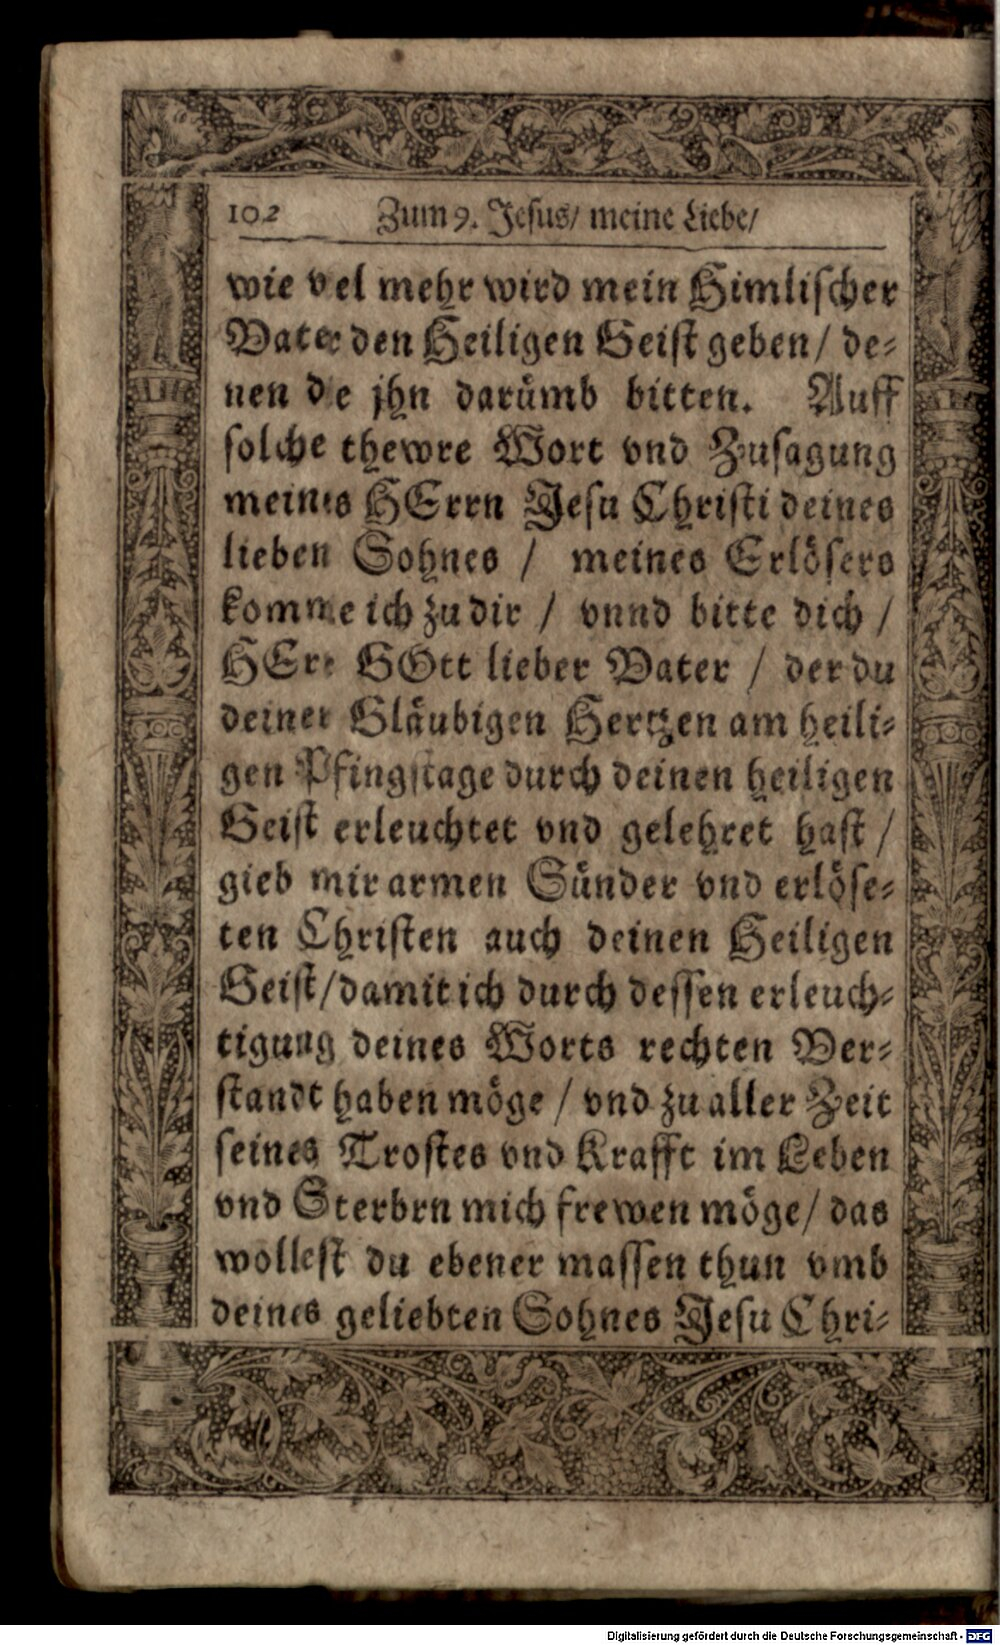 102 Zum 9. Jesus/ meine Liebe/
wie vel mehr wird mein Himlischer
Vater den Heiligen Geist geben/ de-
nen de jhn darümb bitten. Auff
solche thewre Wort vnd Zusagung
meines HErrn Jesu Christi deines
lieben Sohnes / meines Erlösers
komme ich zu dir / vnnd bitte dich /
HErr GOtt lieber Vater / der du
deiner Gläubigen Hertzen am heili-
gen Pfingstage durch deinen heiligen
Geist erleuchtet vnd gelehret hast /
gieb mir armen Sünder vnd erlöse-
ten Christen auch deinen Heiligen
Geist/ damit ich durch dessen erleuch-
tigung deines Worts rechten Ver-
standt haben möge / vnd zu aller Zeit
seines Trostes vnd Krafft im Leben
vnd Sterbrn mich frewen möge/ das
wollest du ebener massen thun vmb
deines geliebten Sohnes Jesu Chri-
Digitalisierung gefördert durch die Deutsche Forschungsgemeinschaft - DFG